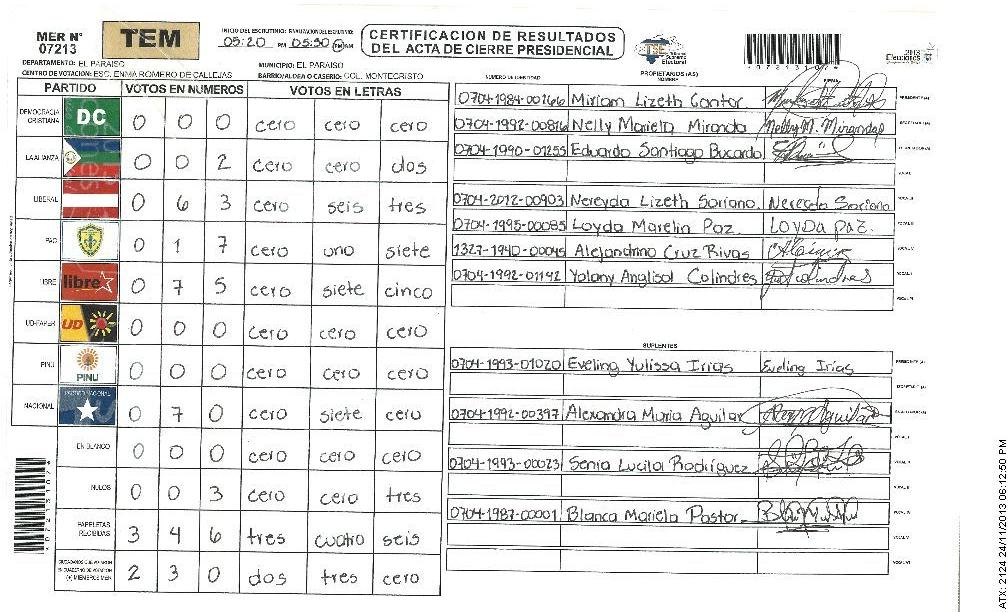 MER N° 07213
TEM
INICIO DEL ESCRUTINIO: FINALIZACION DEL ESCRUTINIO:
05:20 PM 05:50 PM AM
CERTIFICACION DE RESULTADOS
DEL ACTA DE CIERRE PRESIDENCIAL
TSE Tribunal Supremo Electoral
2013 Elecciones
DEPARTAMENTO: EL PARAISO
MUNICIPIO: EL PARAISO
CENTRO DE VOTACION: ESC. ENMA ROMERO DE CALLEJAS
BARRIO/ALDEA O CASERIO: COL. MONTECRISTO
PARTIDO VOTOS EN NUMEROS VOTOS EN LETRAS
DEMOCRACIA CRISTIANA DC 0 0 0 cero cero cero
LA ALIANZA 0 0 2 cero cero dos
LIBERAL 0 6 3 cero seis tres
PAC 0 1 7 cero uno siete
LIBRE libre 0 7 5 cero siete cinco
UD-FAPER UD 0 0 0 cero cero cero
PINU PINU 0 0 0 cero cero cero
NACIONAL 0 7 0 cero siete cero
EN BLANCO 0 0 0 cero cero cero
NULOS 0 0 3 cero cero tres
PAPELETAS RECIBIDAS 3 4 6 tres cuatro seis
CIUDADANOS QUE VOTARON EN CUADERNO DE VOTACION (+) MIEMBROS MER 2 3 0 dos tres cero
NUMERO DE IDENTIDAD PROPIETARIOS (AS) NOMBRE FIRMA
0704-1984-00266 Miriam Lizeth Gontor PRESIDENTE (A)
0704-1992-00816 Nelly Mariela Miranda Nelly M. Miranda SECRETARIO (A)
0704-1990-01255 Eduardo Santiago Bucardo ESCRUTADOR (A)
VOCAL I
0704-2012-00903 Nereyda Lizeth Soriano Nereyda Soriano VOCAL II
0704-1995-00085 Loyda Marelin Paz. Loyda Paz. VOCAL III
1327-1940-00045 Alejandrino Cruz Rivas VOCAL IV
0704-1992-01142 Yolany Anglisol Colindres VOCAL V
VOCAL VI
SUPLENTES
0704-1993-01020 Eveling Yulissa Irias Eveling Irías PRESIDENTE (A)
SECRETARIO (A)
0704-1992-00397 Alexandra Maria Aguilar ESCRUTADOR (A)
VOCAL I
0704-1993-00023 Senia Lucila Rodríguez VOCAL II
VOCAL III
0704-1987-00001 Blanca Mariela Pastor VOCAL IV
VOCAL V
VOCAL VI
ATX: 2124 24/11/2013 06:12:50 PM